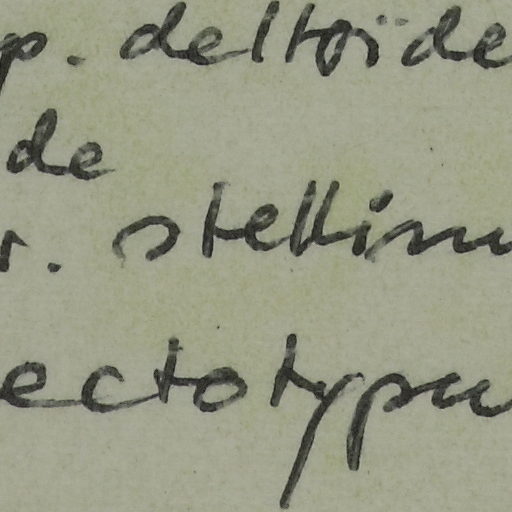 p. deltoïde
de
r. stellinu
ectotypu